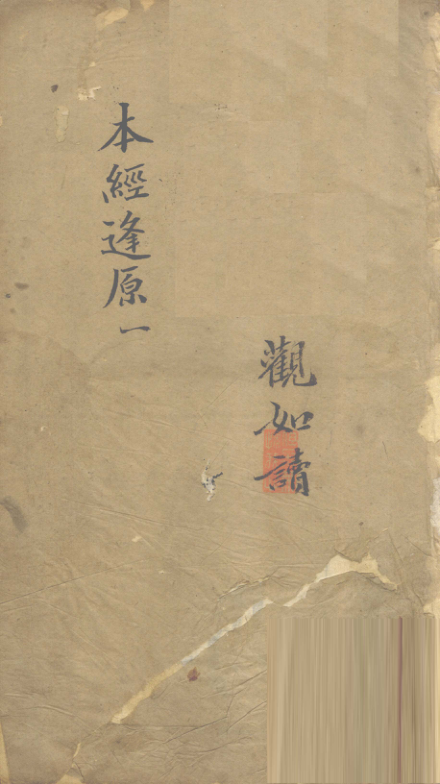 本經逢原一
觀如讀